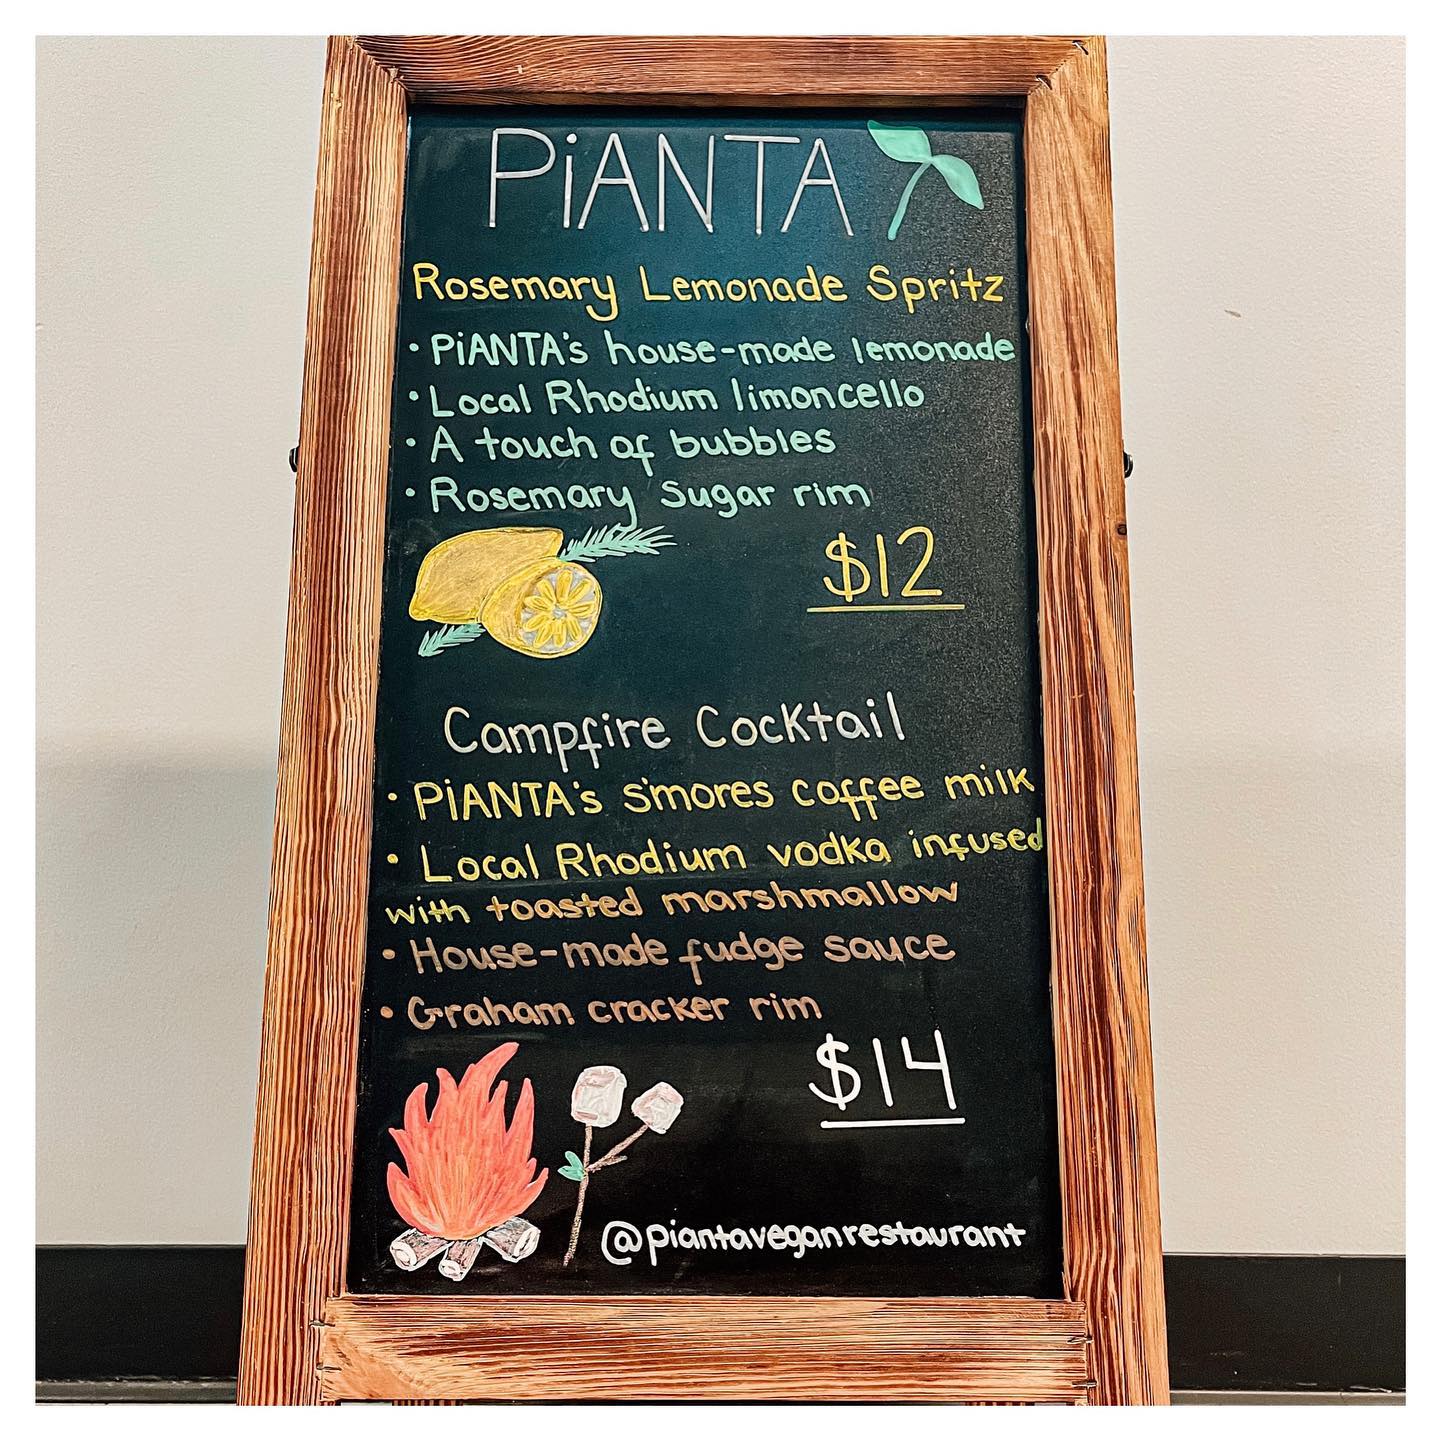 PiANTA
Rosemary Lemonade Spritz
• PiANTA's house-made lemonade
• Local Rhodium limoncello
• A touch of bubbles
• Rosemary sugar rim
$12
Campfire Cocktail
• PiANTA's s'mores coffee milk
• Local Rhodium vodka infused
with toasted marshmallow
• House-made fudge sauce
• Graham cracker rim
$14
@piantaveganrestaurant